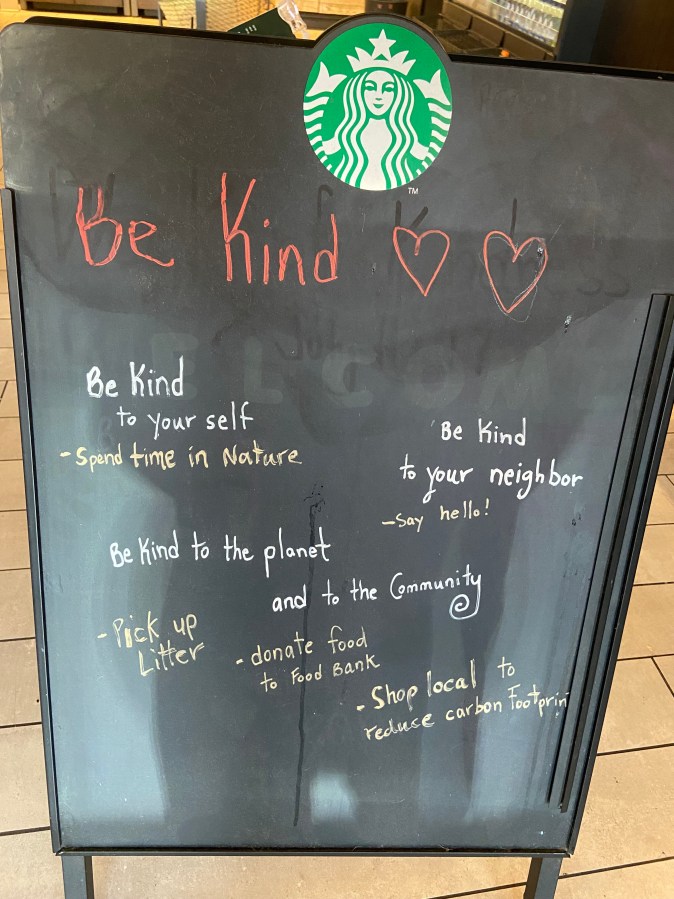 TM
Be Kind
Be Kind
to your self
-Spend time in Nature
Be Kind
to your neighbor
-Say hello!
Be Kind to the planet
and to the Community
-Pick up
Litter
-donate food
to Food Bank
-Shop local to
reduce carbon Footprin